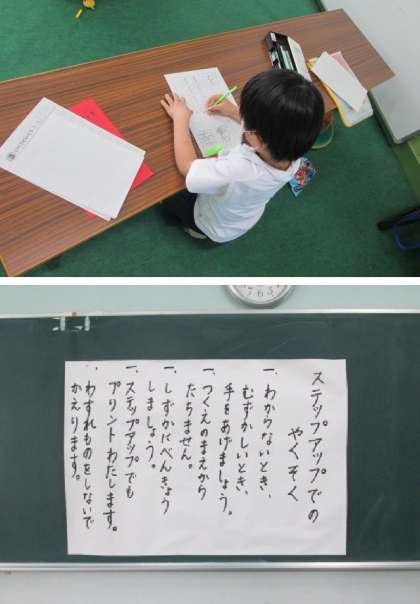 ステップアップでの
やくそく
一、わからないとき、
むずかしいとき、
手をあげましょう。
一、つくえのまえから
たちません。
一、しずかにべんきょう
しましょう。
一、ステップアップでも
プリントわたします。
わすれものをしないで
かえります。